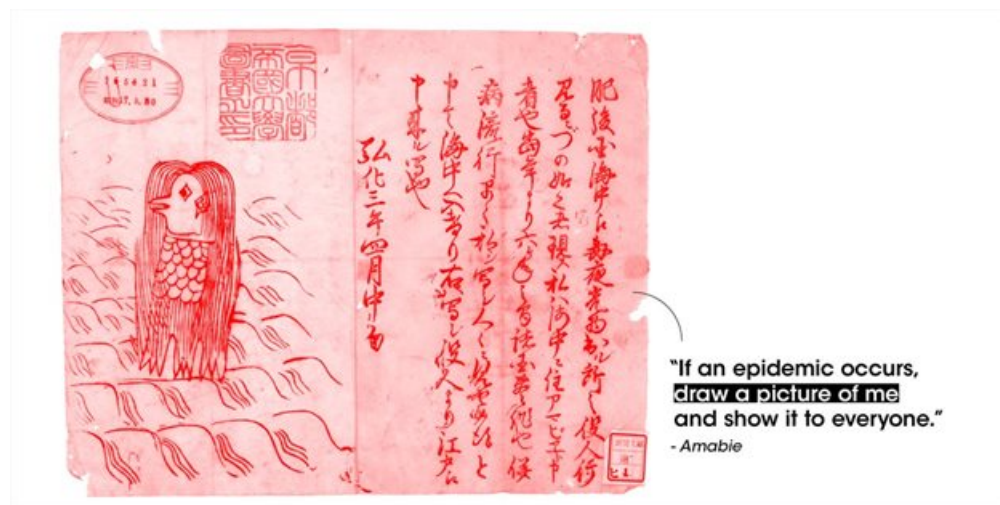 肥後国海中え毎夜光物出ル所之役人行
見るニづの如之者現ス私ハ海中ニ住アマビヱト申
者也当年より六ヶ年之間諸国豊作也併
病流行早々私シ写シ人々ニ見セ候得と
申て海中へ入けり右写シ役人より江戸え
申来ル写也
弘化三年四月中旬
京都
帝國大學
圖書之印
“If an epidemic occurs,
draw a picture of me
and show it to everyone.”
- Amabie